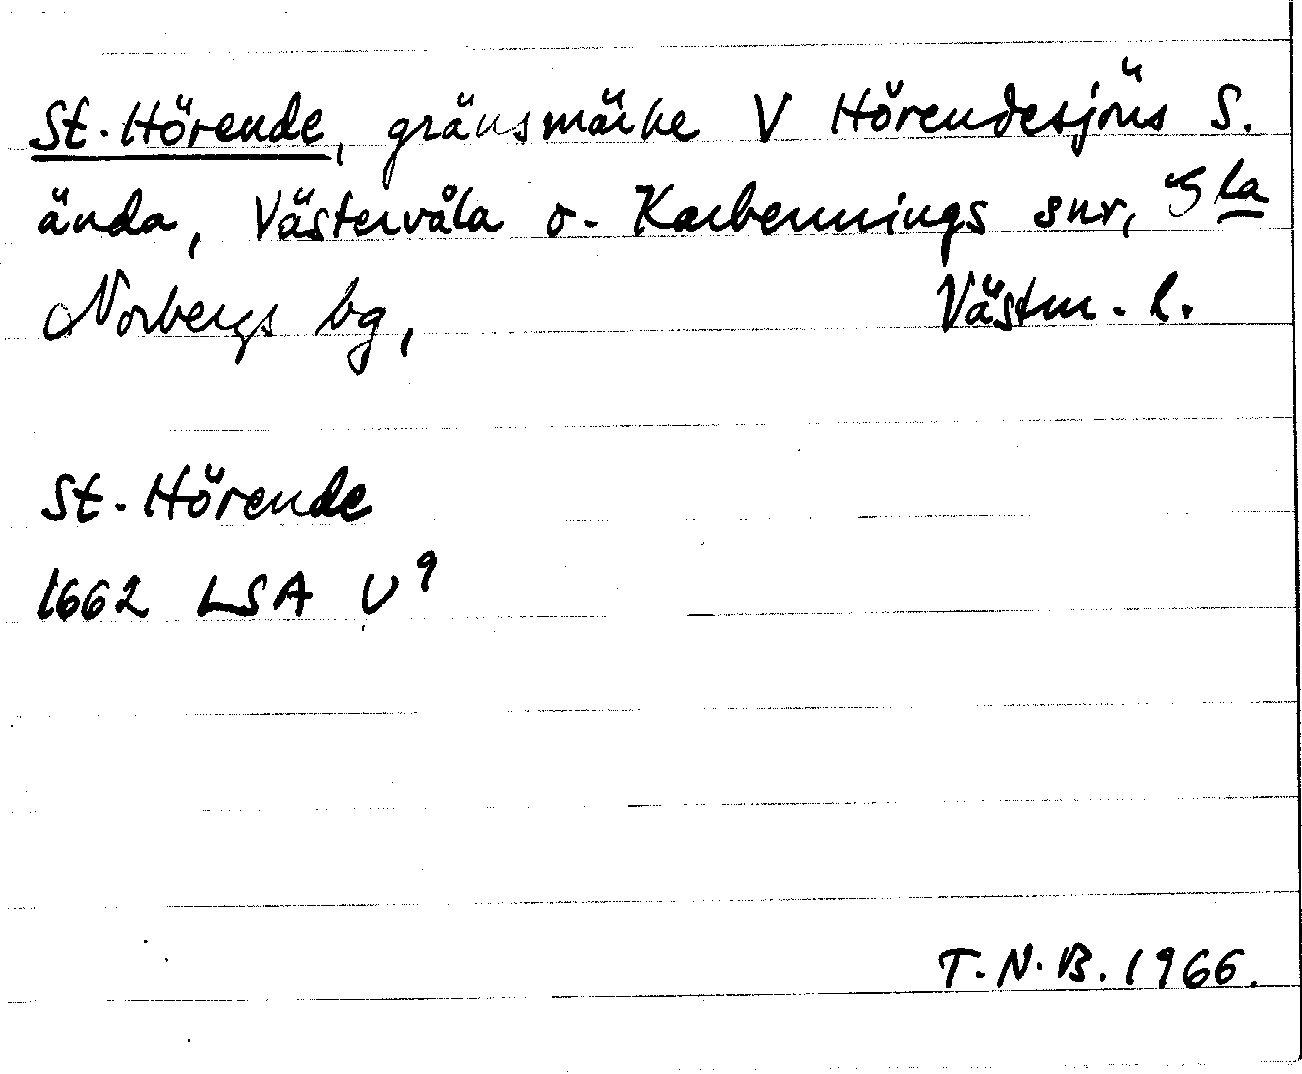 St. Hörende, gränsmärke V Hörendesjöns S.
ända, Västervåla o. Karbennings snr, Gla
Norbergs bg, Västm. l.
St. Hörende
1662 LSA U⁹
T. N. B. 1966.